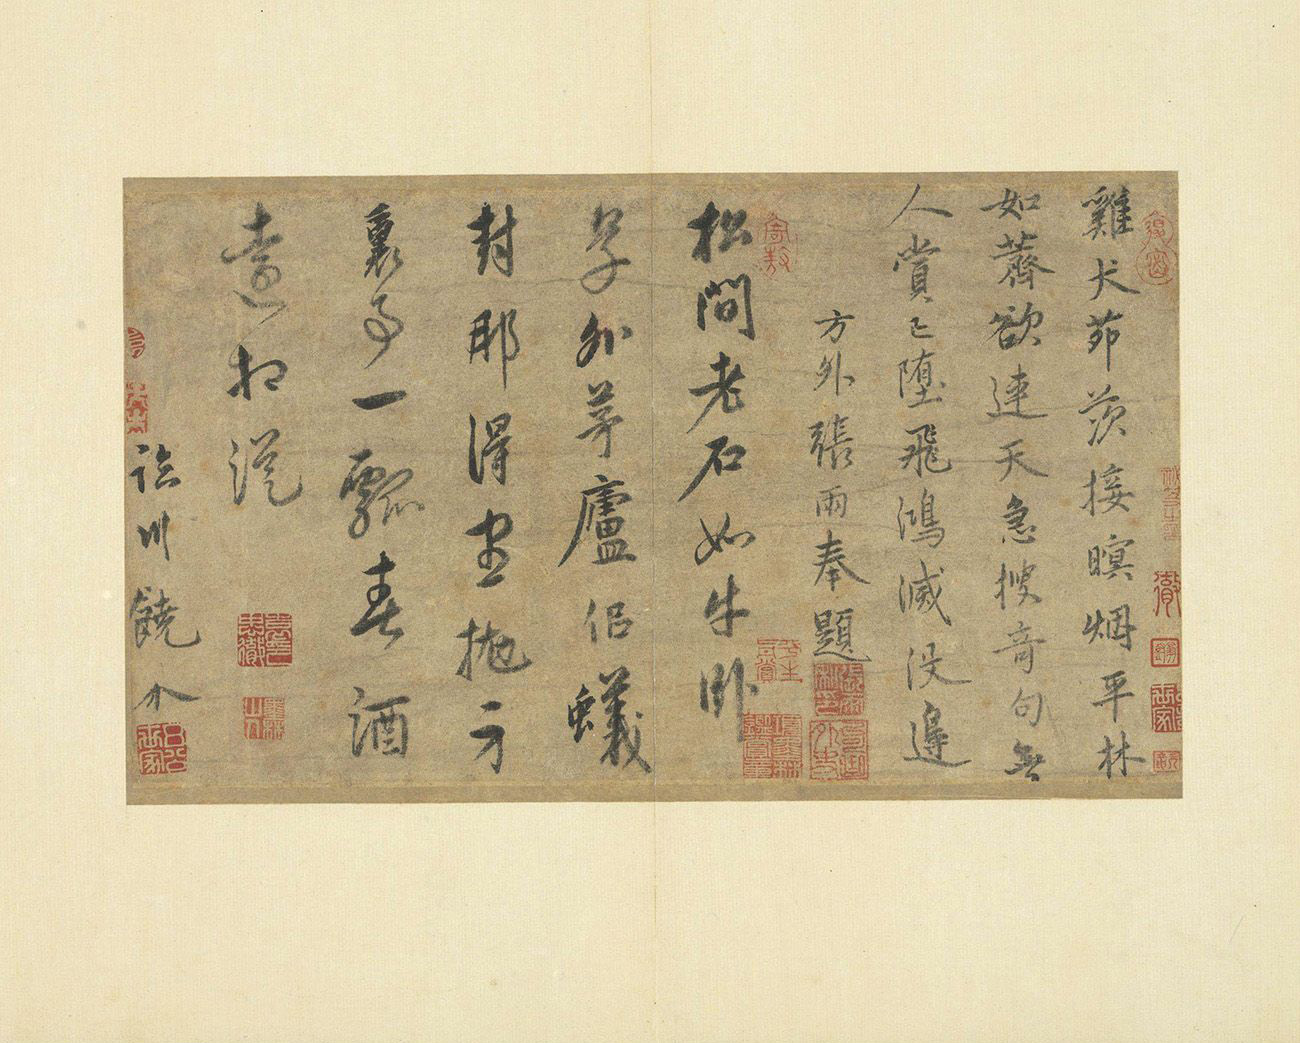 雞犬茆茨接暝烟平林
如薺欲連天急搜奇句無
人賞已墮飛鴻滅没邊
方外張雨奉題
松間老石如牛卧
草外茅廬侶蟻
封那得畫拋方
裏事一瓢春酒
遠相從
臨川饒介